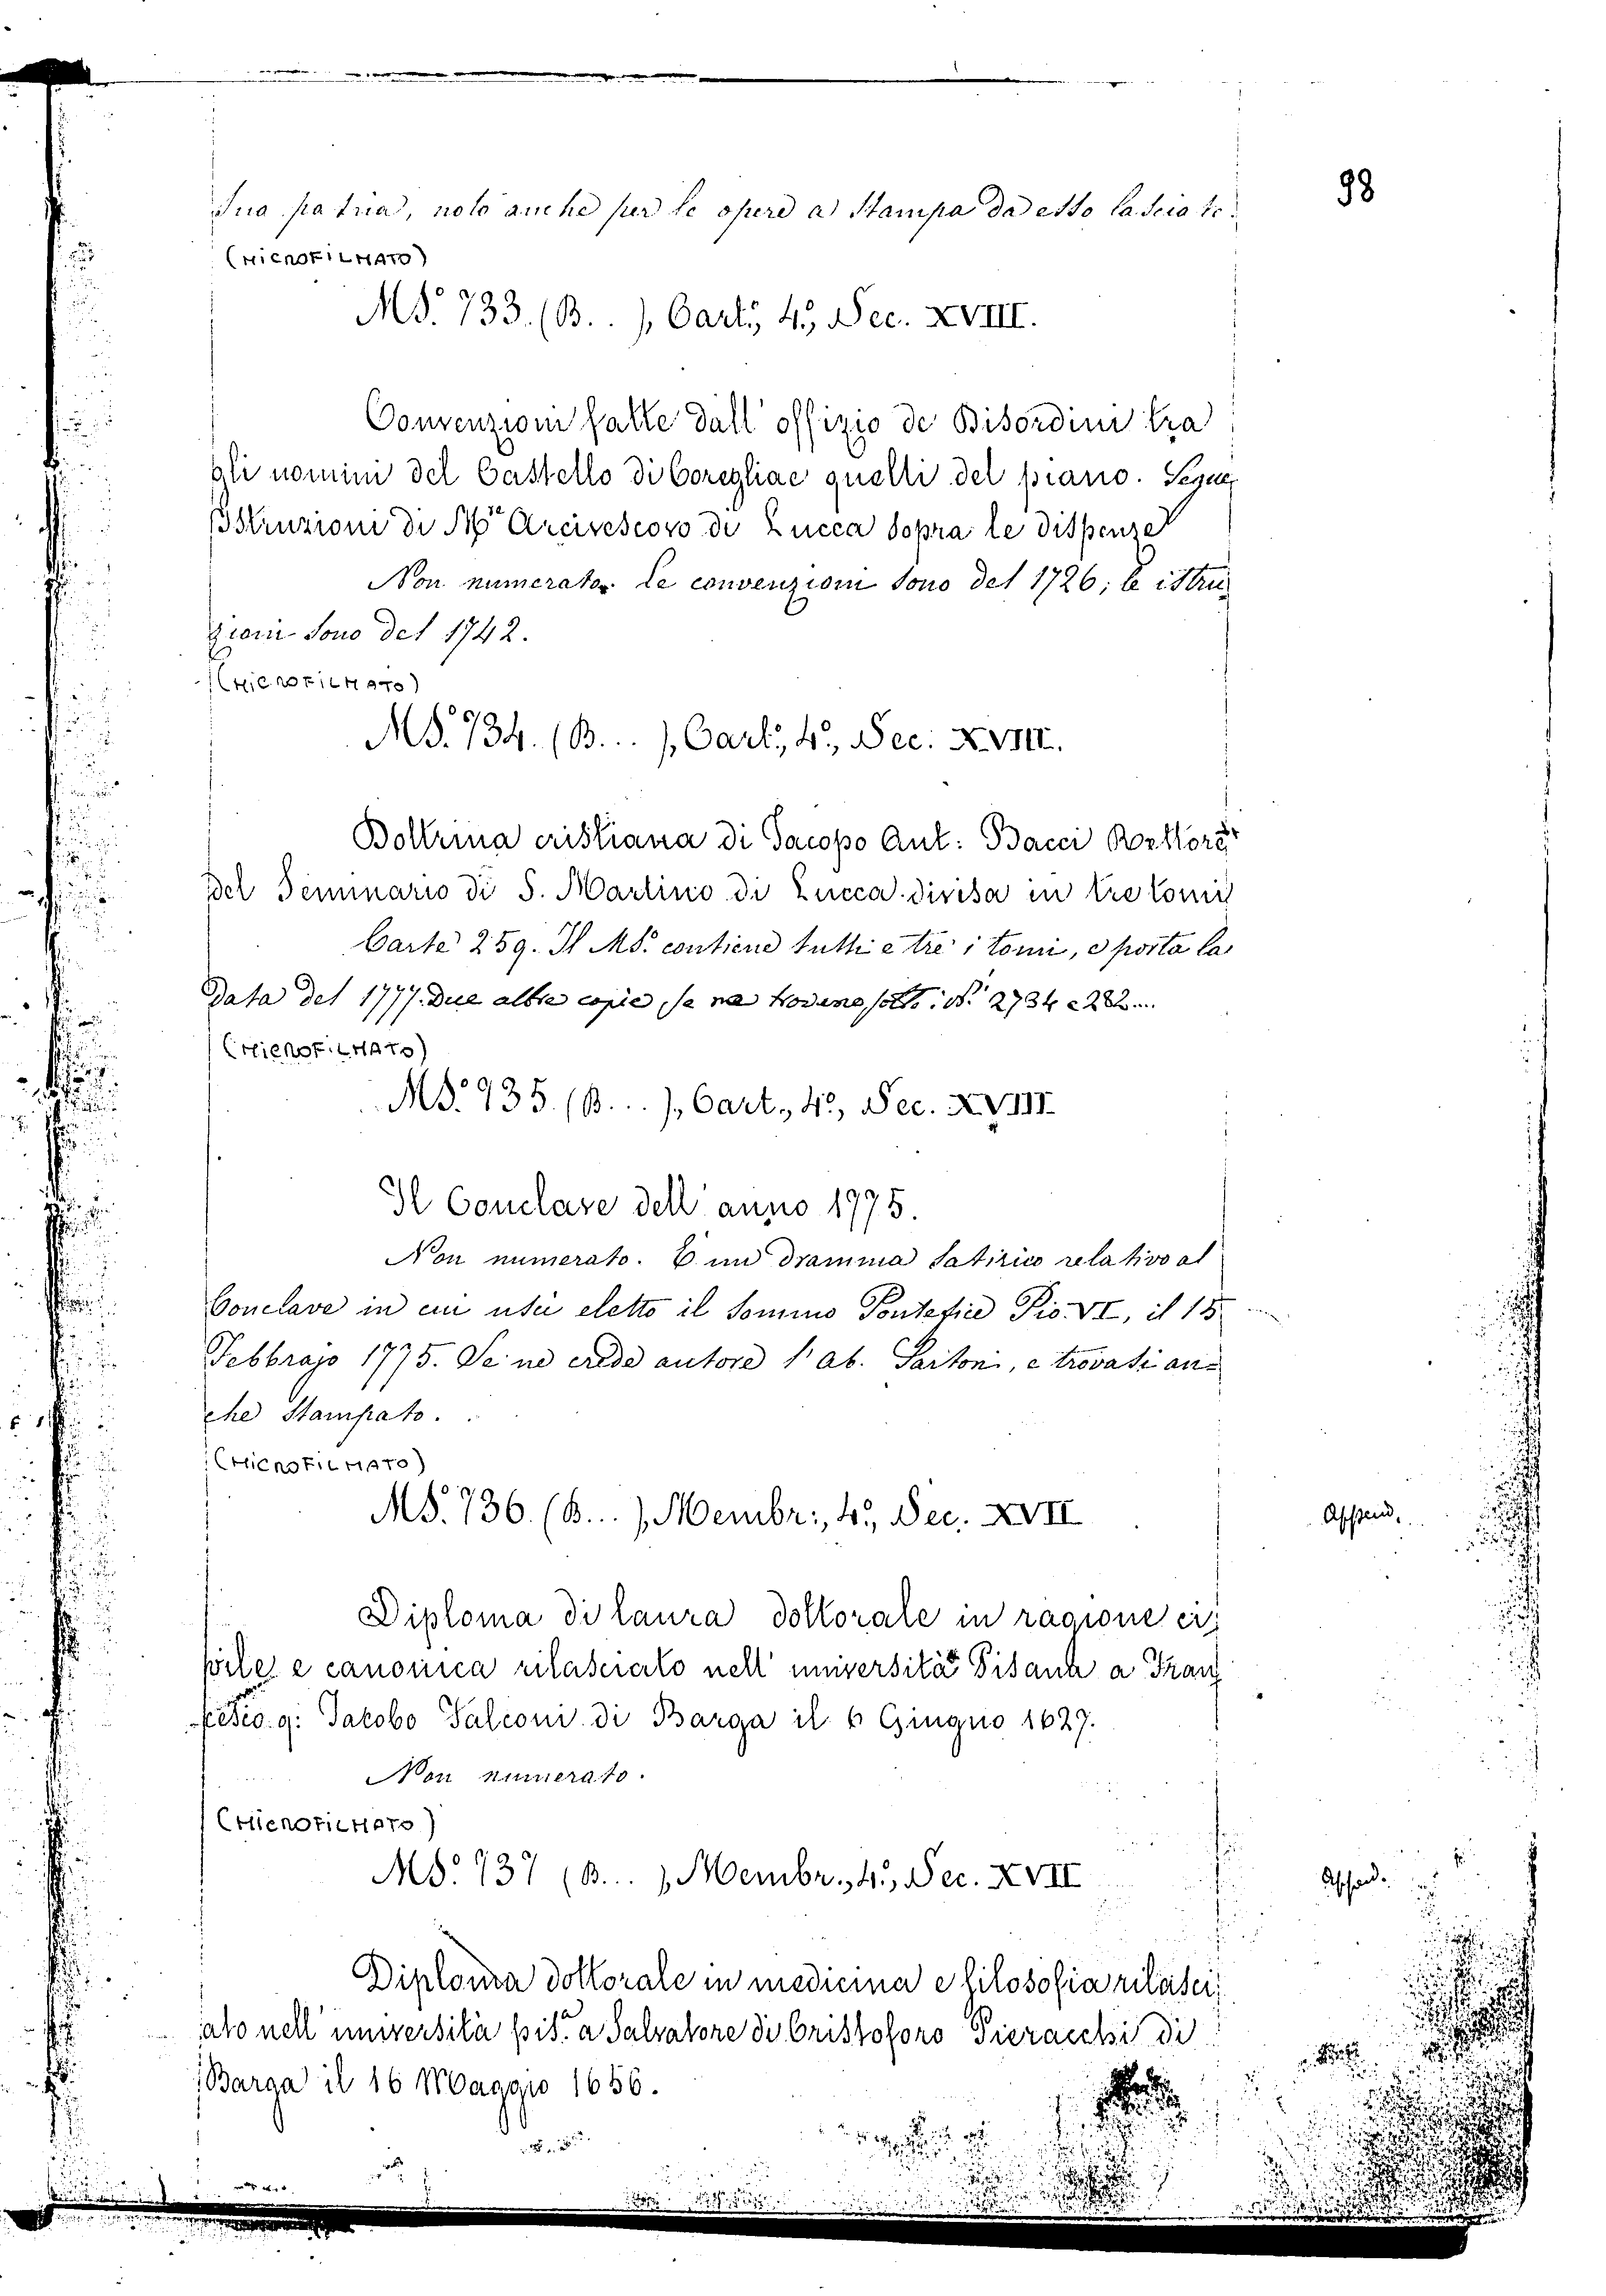 98
sua patria, noto anche per le opere a stampa da esso lasciate.
(MICROFILMATO)
MS. 733. (B. . ), Cart., 4°, Sec. XVIII.
Convenzioni fatte dall' offizio de Discordini tra
gli uomini del Castello di Coreglia e quelli del piano. Segue
Istruzioni di Mr Arcivescovo di Lucca sopra le dispenze
Non numerato. Le convenzioni sono del 1726; le istru
zioni sono del 1742.
(MICROFILMATO)
MS. 734. (B... ), Cart., 4°, Sec. XVIII.
Dottrina cristiana di Jacopo Ant: Bacci Rettore
del Seminario di S. Martino di Lucca divisa in tre tomi
Carte 259. Il MS. contiene tutti e tre i tomi, e porta la
data del 1777. Due altre copie se ne trovano sotto i N. 2734 e 282
(MICROFILMATO)
MS. 735. (B... ), Cart., 4°, Sec. XVIII
Il Conclave dell' anno 1775.
Non numerato. È un dramma satirico relativo al
Conclave in cui uscì eletto il sommo Pontefice Pio VI, il 15
Febbrajo 1775. Se ne crede autore l' Ab. Sartoni, e trovasi an=
che stampato.
(MICROFILMATO)
MS. 736. (B... ), Membr:, 4°, Sec. XVII
Append.
Diploma di laura dottorale in ragione ci
vile e canonica rilasciato nell' università Pisana a Fran
cesco q: Jacobo Falconi di Barga il 6 Giugno 1627.
Non numerato.
(MICROFILMATO)
MS. 737 (B... ), Membr., 4°, Sec. XVII
Append.
Diploma dottorale in medicina e filosofia rilasci
ato nell' università pis.a a Salvatore di Cristoforo Pieracchi di
Barga il 16 Maggio 1656.